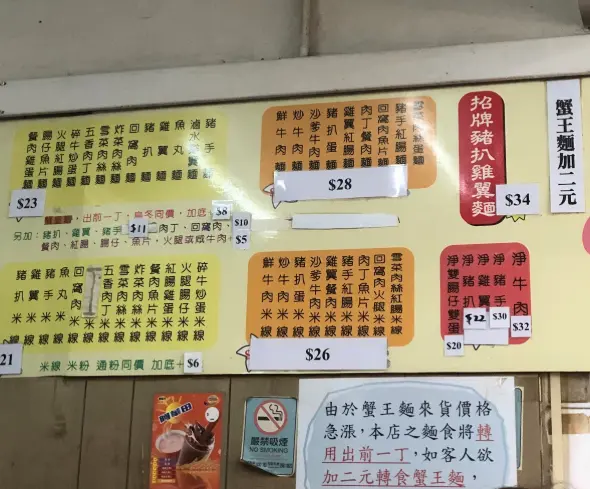 蟹王麵加二元
招牌豬扒雞翼麵
$34
雪菜肉絲蛋麵
豬手紅腸麵
回窩肉魚片麵
肉丁餐肉麵
雞翼紅腸麵
豬扒蛋麵
沙爹牛肉麵
炒牛肉麵
鮮牛肉麵
$28
豬手麵
滷水
魚丸麵
雞翼麵
豬扒麵
回窩肉麵
炸菜肉絲麵
雪菜肉絲麵
五香肉丁麵
碎牛炒蛋麵
火腿紅腸麵
腸仔魚片麵
餐肉雞蛋麵
$23
出前一丁,烏冬同價,加底+$8
另加:豬扒,雞翼,豬手$11肉丁,回窩肉,$10
餐肉,紅腸,腸仔,魚片,火腿或炸牛肉+$5
淨牛肉
$32
淨豬手
$30
淨豬扒雞翼
$22
淨雙腸仔雙蛋
$20
雪菜肉絲紅腸米線
回窩肉火腿米線
肉丁魚片米線
豬手紅腸米線
雞翼餐肉米線
沙爹牛肉米線
豬扒蛋米線
炒牛肉米線
鮮牛肉米線
$26
碎牛炒蛋米線
火腿腸仔米線
紅腸雞蛋米線
餐肉魚片米線
炸菜肉絲米線
雪菜肉絲米線
五香肉丁米線
回窩肉米線
魚丸米線
豬手米線
雞翼米線
豬扒米線
21
米線 米粉 通粉同價 加底+$6
阿華田
嚴禁吸煙
NO SMOKING
由於蟹王麵來貨價格
急漲,本店之麵食將轉
用出前一丁,如客人欲
加二元轉食蟹王麵,